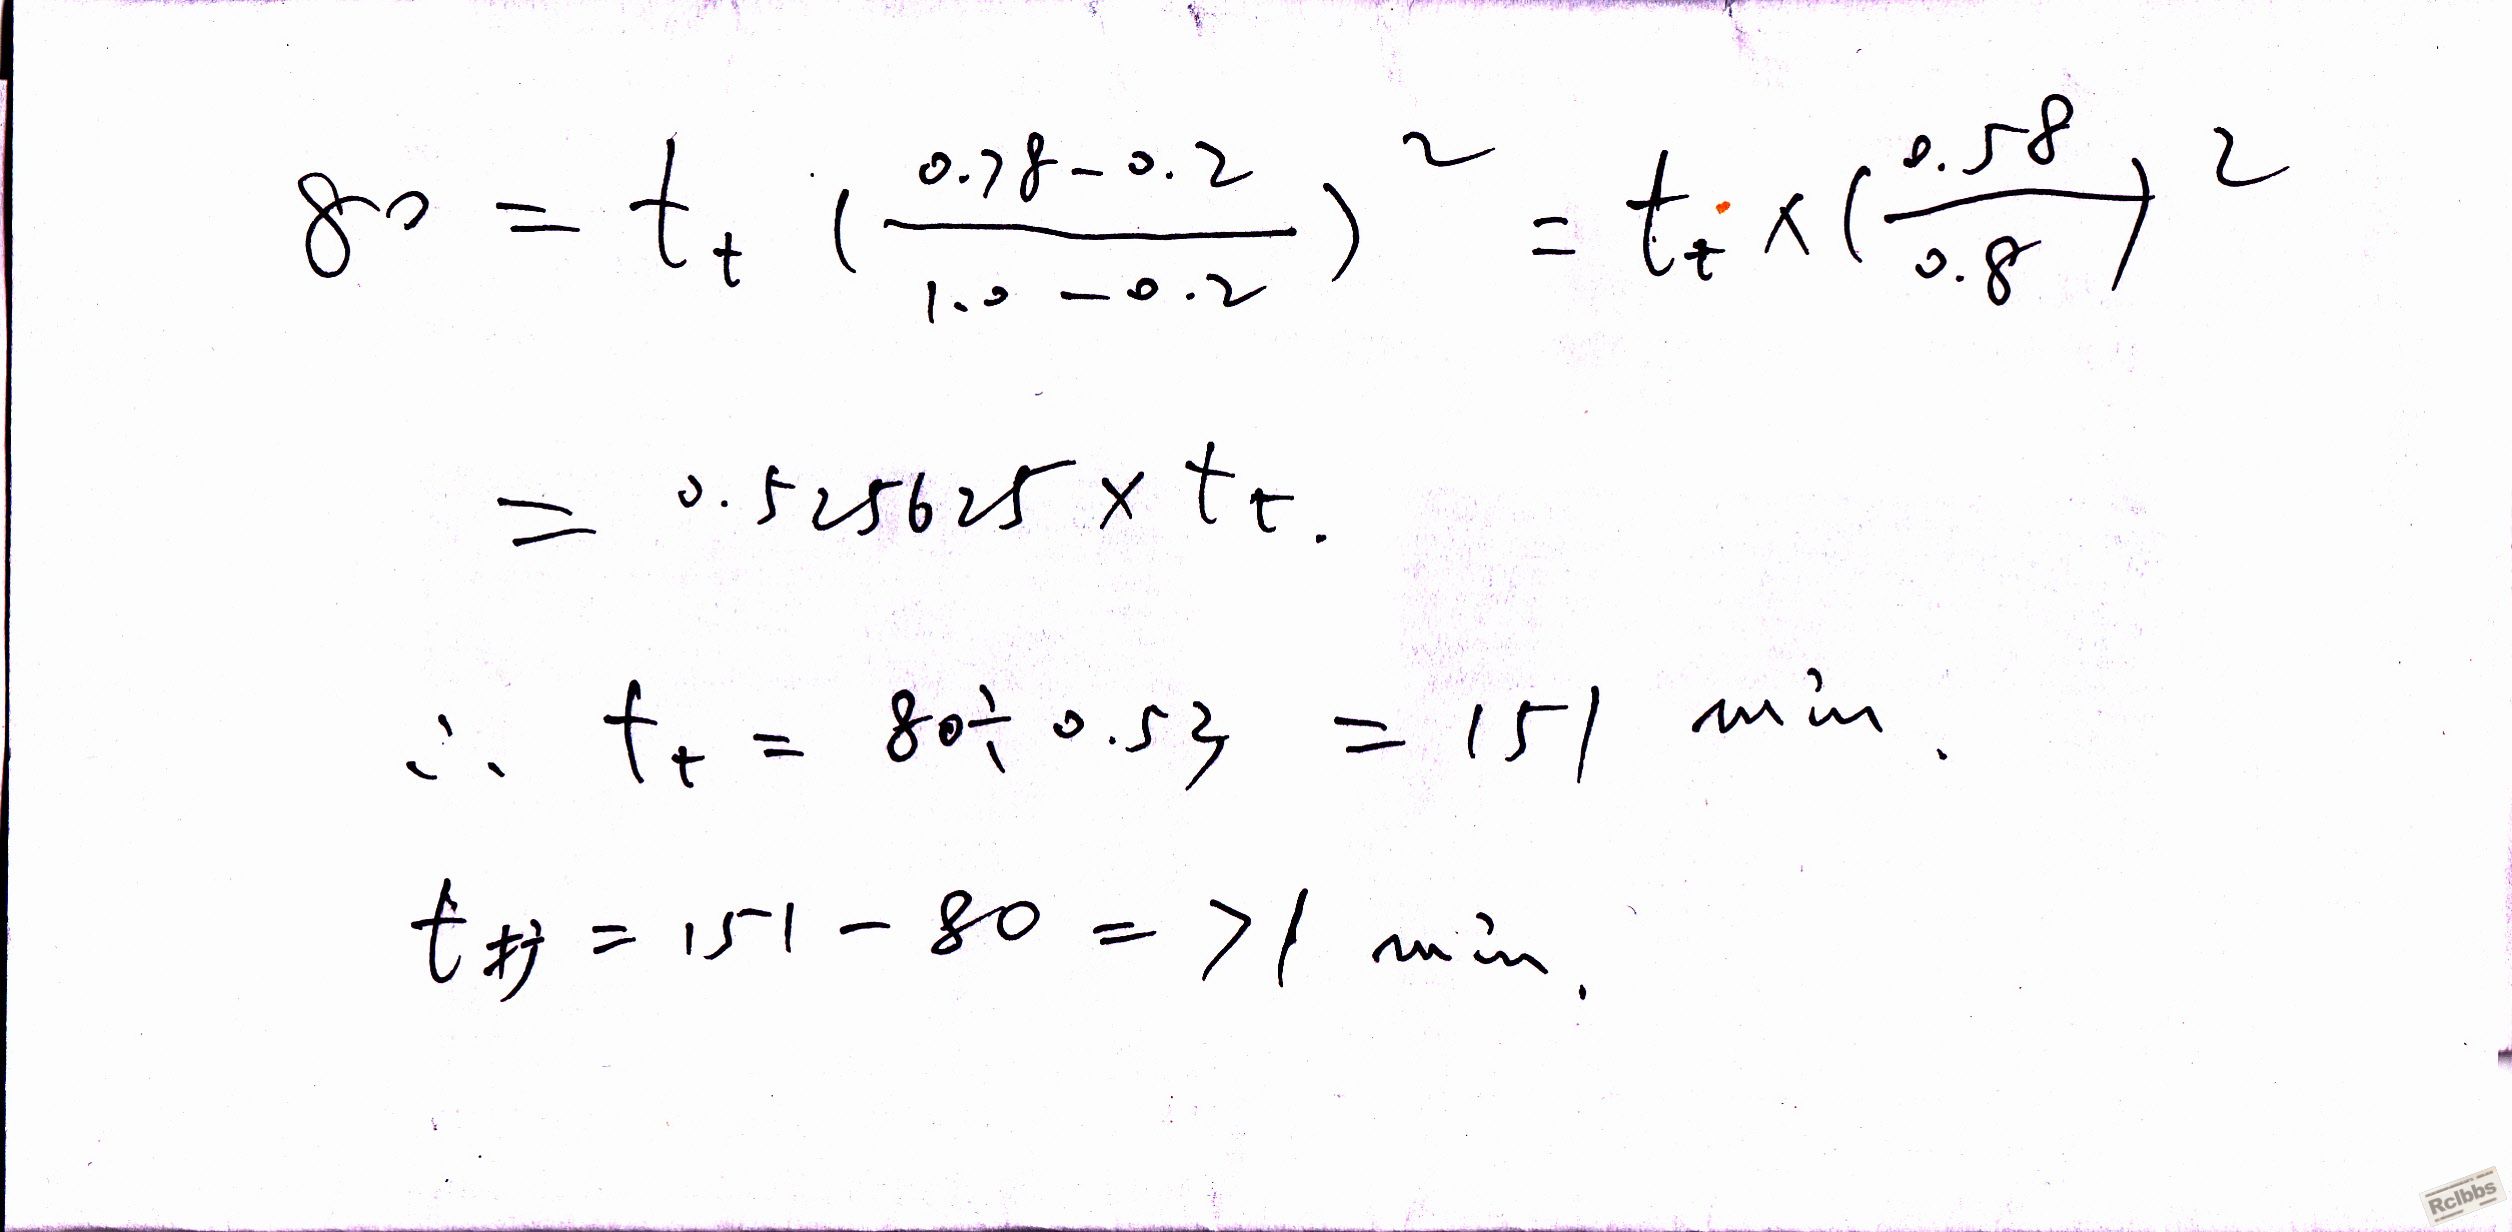 80 = t_t (\frac{0.78-0.2}{1.0-0.2})^2 = t_t × (\frac{0.58}{0.8})^2
= 0.525625 × t_t.
∴ t_t = 80 ÷ 0.53 = 151 min.
t = 151 - 80 = 71 min.
Rclbbs